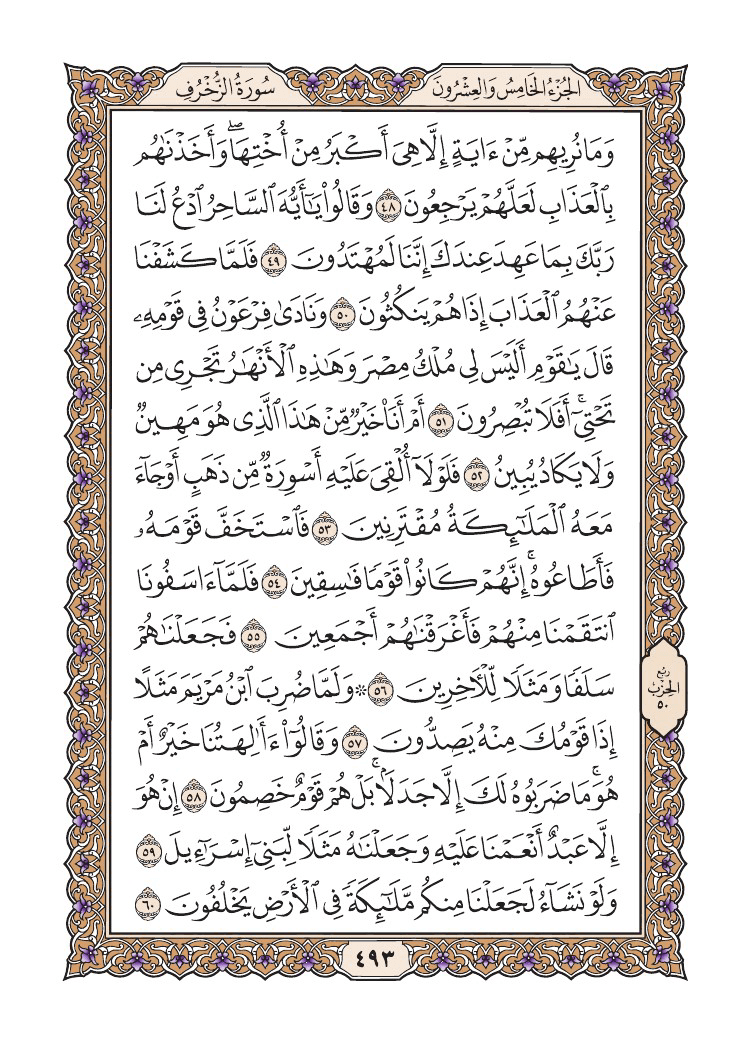 سُورَةُ الزُّخْرُفِ
الجُزْءُ الخَامِسُ وَالعِشْرُونَ
وَمَا نُرِيهِم مِّنْ ءَايَةٍ إِلَّا هِىَ أَكْبَرُ مِنْ أُخْتِهَا ۖ وَأَخَذْنَٰهُم
بِٱلْعَذَابِ لَعَلَّهُمْ يَرْجِعُونَ ٤٨ وَقَالُوا۟ يَٰٓأَيُّهَ ٱلسَّاحِرُ ٱدْعُ لَنَا
رَبَّكَ بِمَا عَهِدَ عِندَكَ إِنَّنَا لَمُهْتَدُونَ ٤٩ فَلَمَّا كَشَفْنَا
عَنْهُمُ ٱلْعَذَابَ إِذَا هُمْ يَنكُثُونَ ٥٠ وَنَادَىٰ فِرْعَوْنُ فِى قَوْمِهِۦ
قَالَ يَٰقَوْمِ أَلَيْسَ لِى مُلْكُ مِصْرَ وَهَٰذِهِ ٱلْأَنْهَٰرُ تَجْرِى مِن
تَحْتِىٓ ۖ أَفَلَا تُبْصِرُونَ ٥١ أَمْ أَنَا۠ خَيْرٌ مِّنْ هَٰذَا ٱلَّذِى هُوَ مَهِينٌ
وَلَا يَكَادُ يُبِينُ ٥٢ فَلَوْلَآ أُلْقِىَ عَلَيْهِ أَسْوِرَةٌ مِّن ذَهَبٍ أَوْ جَآءَ
مَعَهُ ٱلْمَلَٰٓئِكَةُ مُقْتَرِنِينَ ٥٣ فَٱسْتَخَفَّ قَوْمَهُۥ
فَأَطَاعُوهُ ۚ إِنَّهُمْ كَانُوا۟ قَوْمًا فَٰسِقِينَ ٥٤ فَلَمَّآ ءَاسَفُونَا
ٱنتَقَمْنَا مِنْهُمْ فَأَغْرَقْنَٰهُمْ أَجْمَعِينَ ٥٥ فَجَعَلْنَٰهُمْ
سَلَفًا وَمَثَلًا لِّلْءَاخِرِينَ ٥٦ ۞ وَلَمَّا ضُرِبَ ٱبْنُ مَرْيَمَ مَثَلًا
إِذَا قَوْمُكَ مِنْهُ يَصِدُّونَ ٥٧ وَقَالُوٓا۟ ءَأَٰلِهَتُنَا خَيْرٌ أَمْ
هُوَ ۚ مَا ضَرَبُوهُ لَكَ إِلَّا جَدَلًۢا ۚ بَلْ هُمْ قَوْمٌ خَصِمُونَ ٥٨ إِنْ هُوَ
إِلَّا عَبْدٌ أَنْعَمْنَا عَلَيْهِ وَجَعَلْنَٰهُ مَثَلًا لِّبَنِىٓ إِسْرَٰٓءِيلَ ٥٩
وَلَوْ نَشَآءُ لَجَعَلْنَا مِنكُم مَّلَٰٓئِكَةً فِى ٱلْأَرْضِ يَخْلُفُونَ ٦٠
ربع
الحزب
٥٠
٤٩٣